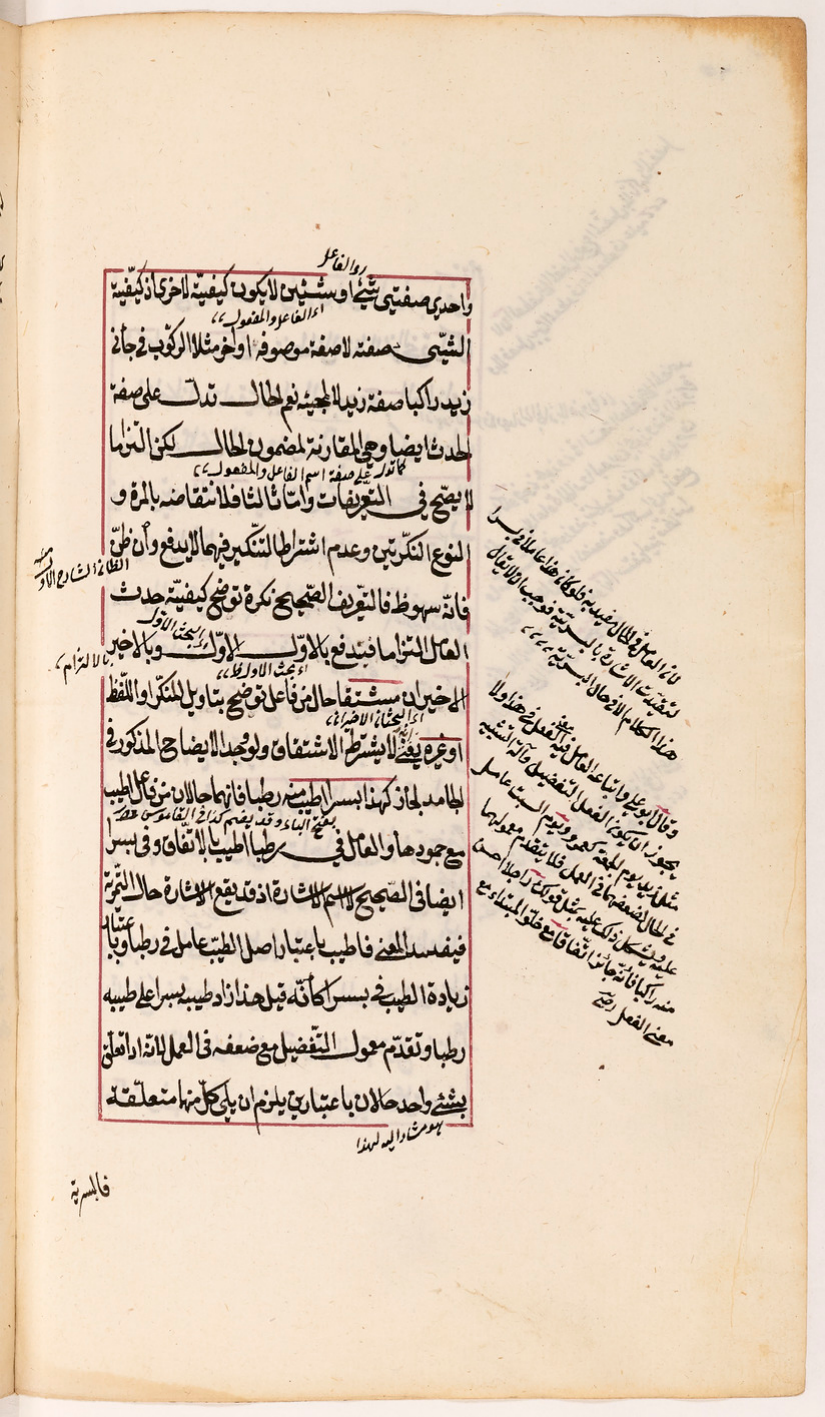 والفاعل
واحدى صفتى شئ او شئين لا يكون كيفية لاخرى اذ كيفية
اى الفاعل والمفعول
الشئ صفته لا صفة موصوفه اواخر مثلا الركوب فى جأنى
زيد راكبا صفة زيد لا لمجيئه نعم الحال تدل على صفة
الحدث ايضا وهى المقارنة لمضمون الحال لكن التزاما
كما تدل على صفة اسم الفاعل والمفعول
لا يصح فى التعريفات وامّا ثالثا فلانتقاضه بالمرة و
النوع النكرتين وعدم اشتراط التنكير فيهما لا يدفع وأن ظنّ
الظان الشارح الاول
فانه سهو ظ فالتعريف الصحيح نكرة توضح كيفية حدث
البحث الاول
العامل التزاما فيندفع بالاول الاول وبالاخير
بالالتزام
اى بحث الاول
الاخيران مشتقا حال من فاعل توضح بتاويل المنكر او اللفظ
اى البحثان الاخيران
او غيره يعنى لا يشترط الاشتقاق ولوجد الايضاح المذكور فى
الجامد لجاز كهذا بسرا اطيب منه رطبا فانهما حالان من فاعل اطيب
بفتح الباء وقد يضم كذا فى القاموس
مع جودها والعامل فى رطبا اطيب بالاتفاق وفى بسرا
ايضا فى الصحيح لا اسم الاشارة اذ قد يقع الاشارة حال التمرية
فيفسد المعنى فاطيب باعتبار اصل الطيب عامل فى رطبا وباعتبار
زيادة الطيب فى بسرا كأنّه قيل هذا زاد طيب بسرا على طيبه
رطبا وتقدم معمول التفضيل مع ضعفه فى العمل لانّه اذا تعلق
بشئ واحد حالان باعتبارين يلزم ان يلى كلّ منهما متعلقه
هو مشار اليه لهذا
فالبسرية
لان العامل فى الحال مقيد به فلو كان هذا عاملا فى بسرا
لتقيدت الاشارة بالبسرية فوجب ان لا يقال
هذا الكلام الا فى حال البسرية
وقال ابو على واتباعه العامل فيه الفعل هذا ولا
يجوز ان يكون افعل التفضيل وآلة التشبيه
مثل زيد يوم الجمعة كعمرو يوم السبت عامل
فى الحال لضعفهما فى العمل فلا يتقدم معمولهما
عليه ويشكل ذلك عليه بمثل قولك راجلا احسن
منه راكبا فانه جائز اتفاقا مع خلو المبتدأ مع
معنى الفعل رضى